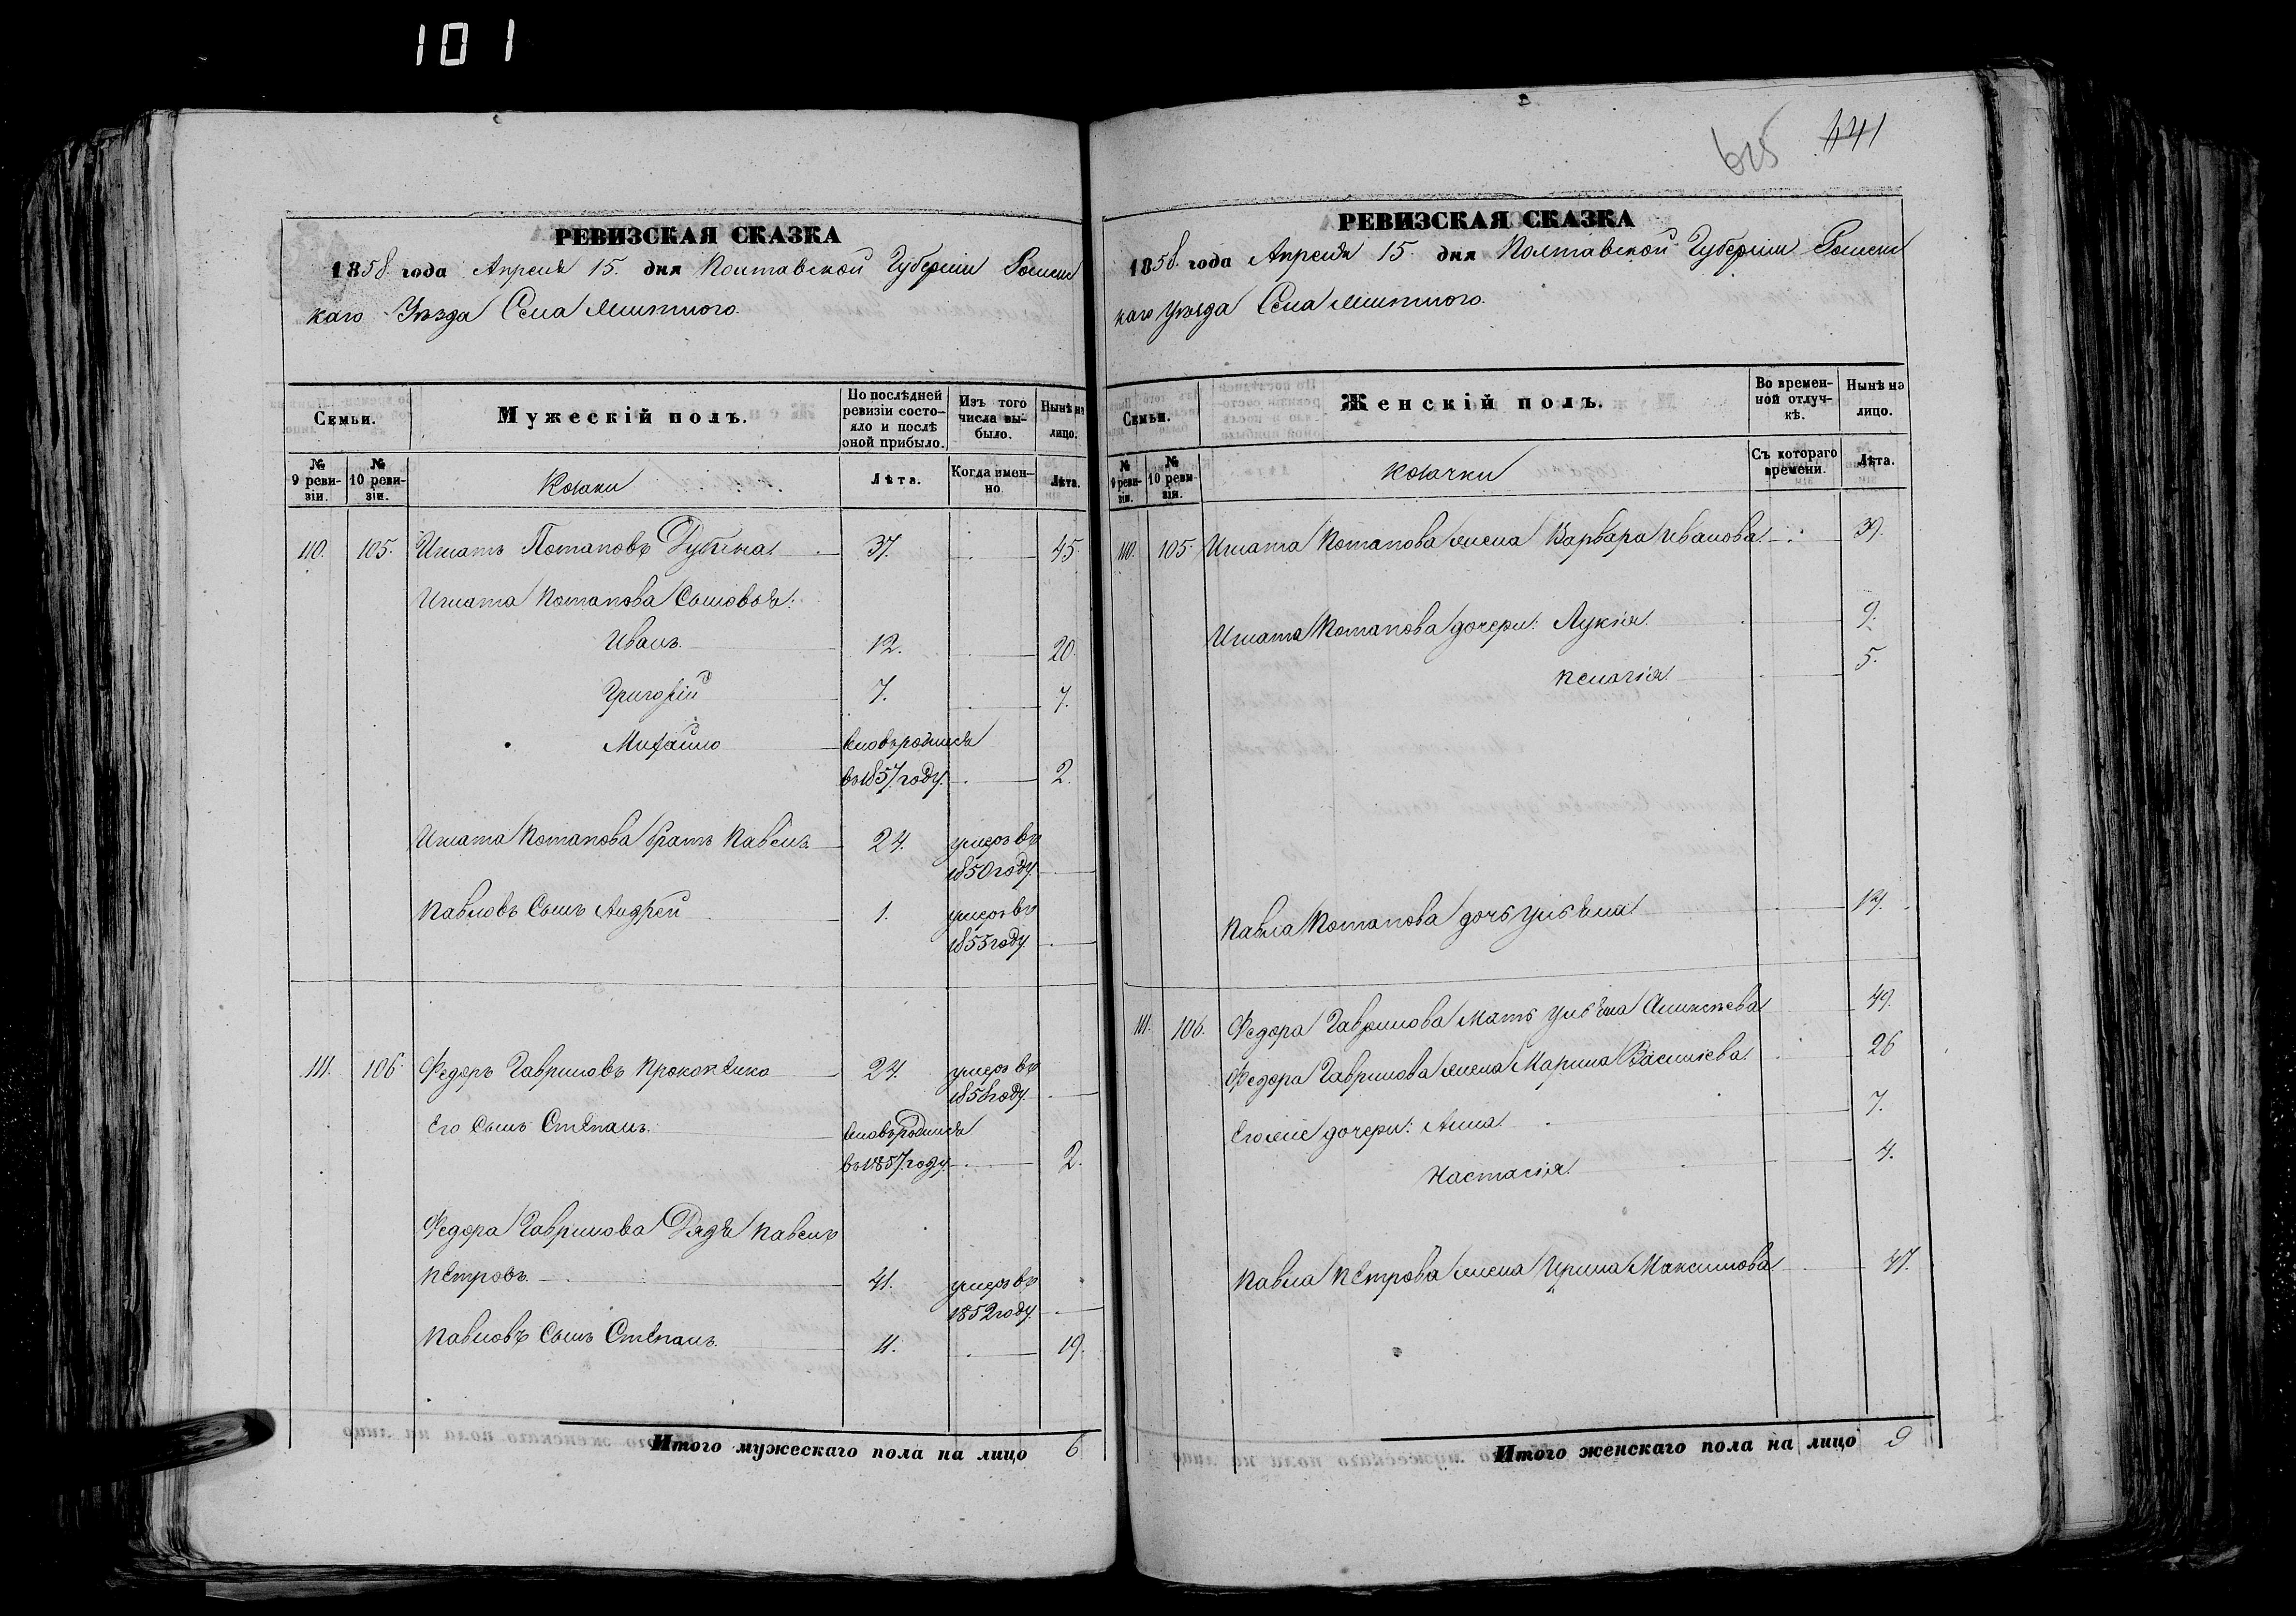 101
625 641
РЕВИЗСКАЯ СКАЗКА
1858 года Апреля 15. дня Полтавской Губерніи Роменс
каго Уѣзда Села
Семьи.
Мужескій полъ.
По послѣдней ревизіи состояло и послѣ оной прибыло.
Изъ того числа выбыло.
Нынѣ на лицо.
№ 9 ревизіи.
№ 10 ревизіи.
Козаки
Лѣта.
Когда именно
Лѣта.
110. 105. Игнатъ Потаповъ Дубина 37. 45.
Игната Потапова Сыновья:
Иванъ 12. 20.
Григорій 7. 7.
Михайло вновь родился
въ 1857 году. 2.
Игната Потапова братъ Павелъ 24. умеръ въ
1850 году.
Павловъ Сынъ Андрей 1. умеръ въ
1855 году.
111. 106. Федоръ Гавриловъ Прокопенко 24. умеръ въ
1858 году.
Его Сынъ Степанъ. вновь родился
въ 1857 году. 2.
Федора Гаврилова Дядя Павелъ
Петровъ. 41. умеръ въ
1852 году.
Павловъ Сынъ Степанъ. 11. 19.
Итого мужескаго пола на лицо 6
РЕВИЗСКАЯ СКАЗКА
1858 года Апреля 15. дня Полтавской Губерніи Роменс
каго Уѣзда Села
Семьи.
Женскій полъ.
Во временной отлучкѣ.
Нынѣ на лицо.
№ 9 ревизіи.
№ 10 ревизіи.
козачки
Съ котораго времени.
Лѣта.
110. 105. Игната Потапова жена Варвара Иванова 39.
Игната Потапова дочери: Лукія 9.
Ксенія 5.
Павла Потапова дочь Ульяна 14.
111. 106. Федора Гаврилова Мать Ульяна Алексѣева 49.
Федора Гаврилова жена Марина Василіева 26
Его же дочери: Анна 7.
Настасія 4.
Павла Петрова жена Ирина Максимова 47.
Итого женскаго пола на лицо 9